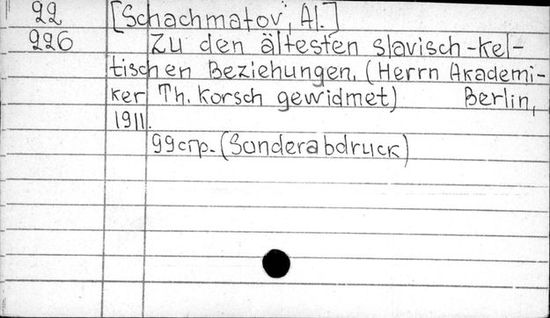 22 [Schachmatov, Al.]
226 Zu den ältesten slavisch-kel-
tischen Beziehungen. (Herrn Akademi-
ker Th. Korsch gewidmet) Berlin,
1911.
99 стр. (Sonderabdruck)